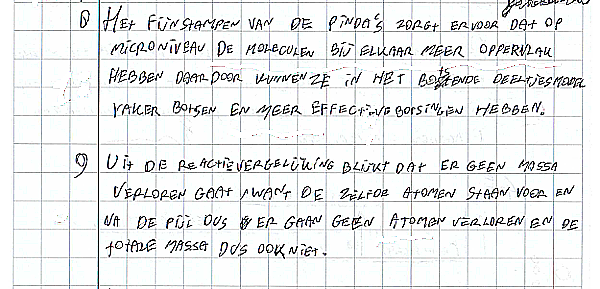 8 HET FIJNSTAMPEN VAN DE PINDA'S ZORGT ERVOOR DAT OP
MICRONIVEAU DE MOLECULEN BIJ ELKAAR MEER OPPERVLAK
HEBBEN DAARDOOR KUNNEN ZE IN HET BOTSENDE DEELTJESMODEL
VAKER BOTSEN EN MEER EFFECTIEVE BOTSINGEN HEBBEN.
9 UIT DE REACTIEVERGELIJKING BLIJKT DAT ER GEEN MASSA
VERLOREN GAAT, WANT DE ZELFDE ATOMEN STAAN VOOR EN
NA DE PIJL DUS ER GAAN GEEN ATOMEN VERLOREN EN DE
TOTALE MASSA DUS OOK NIET.